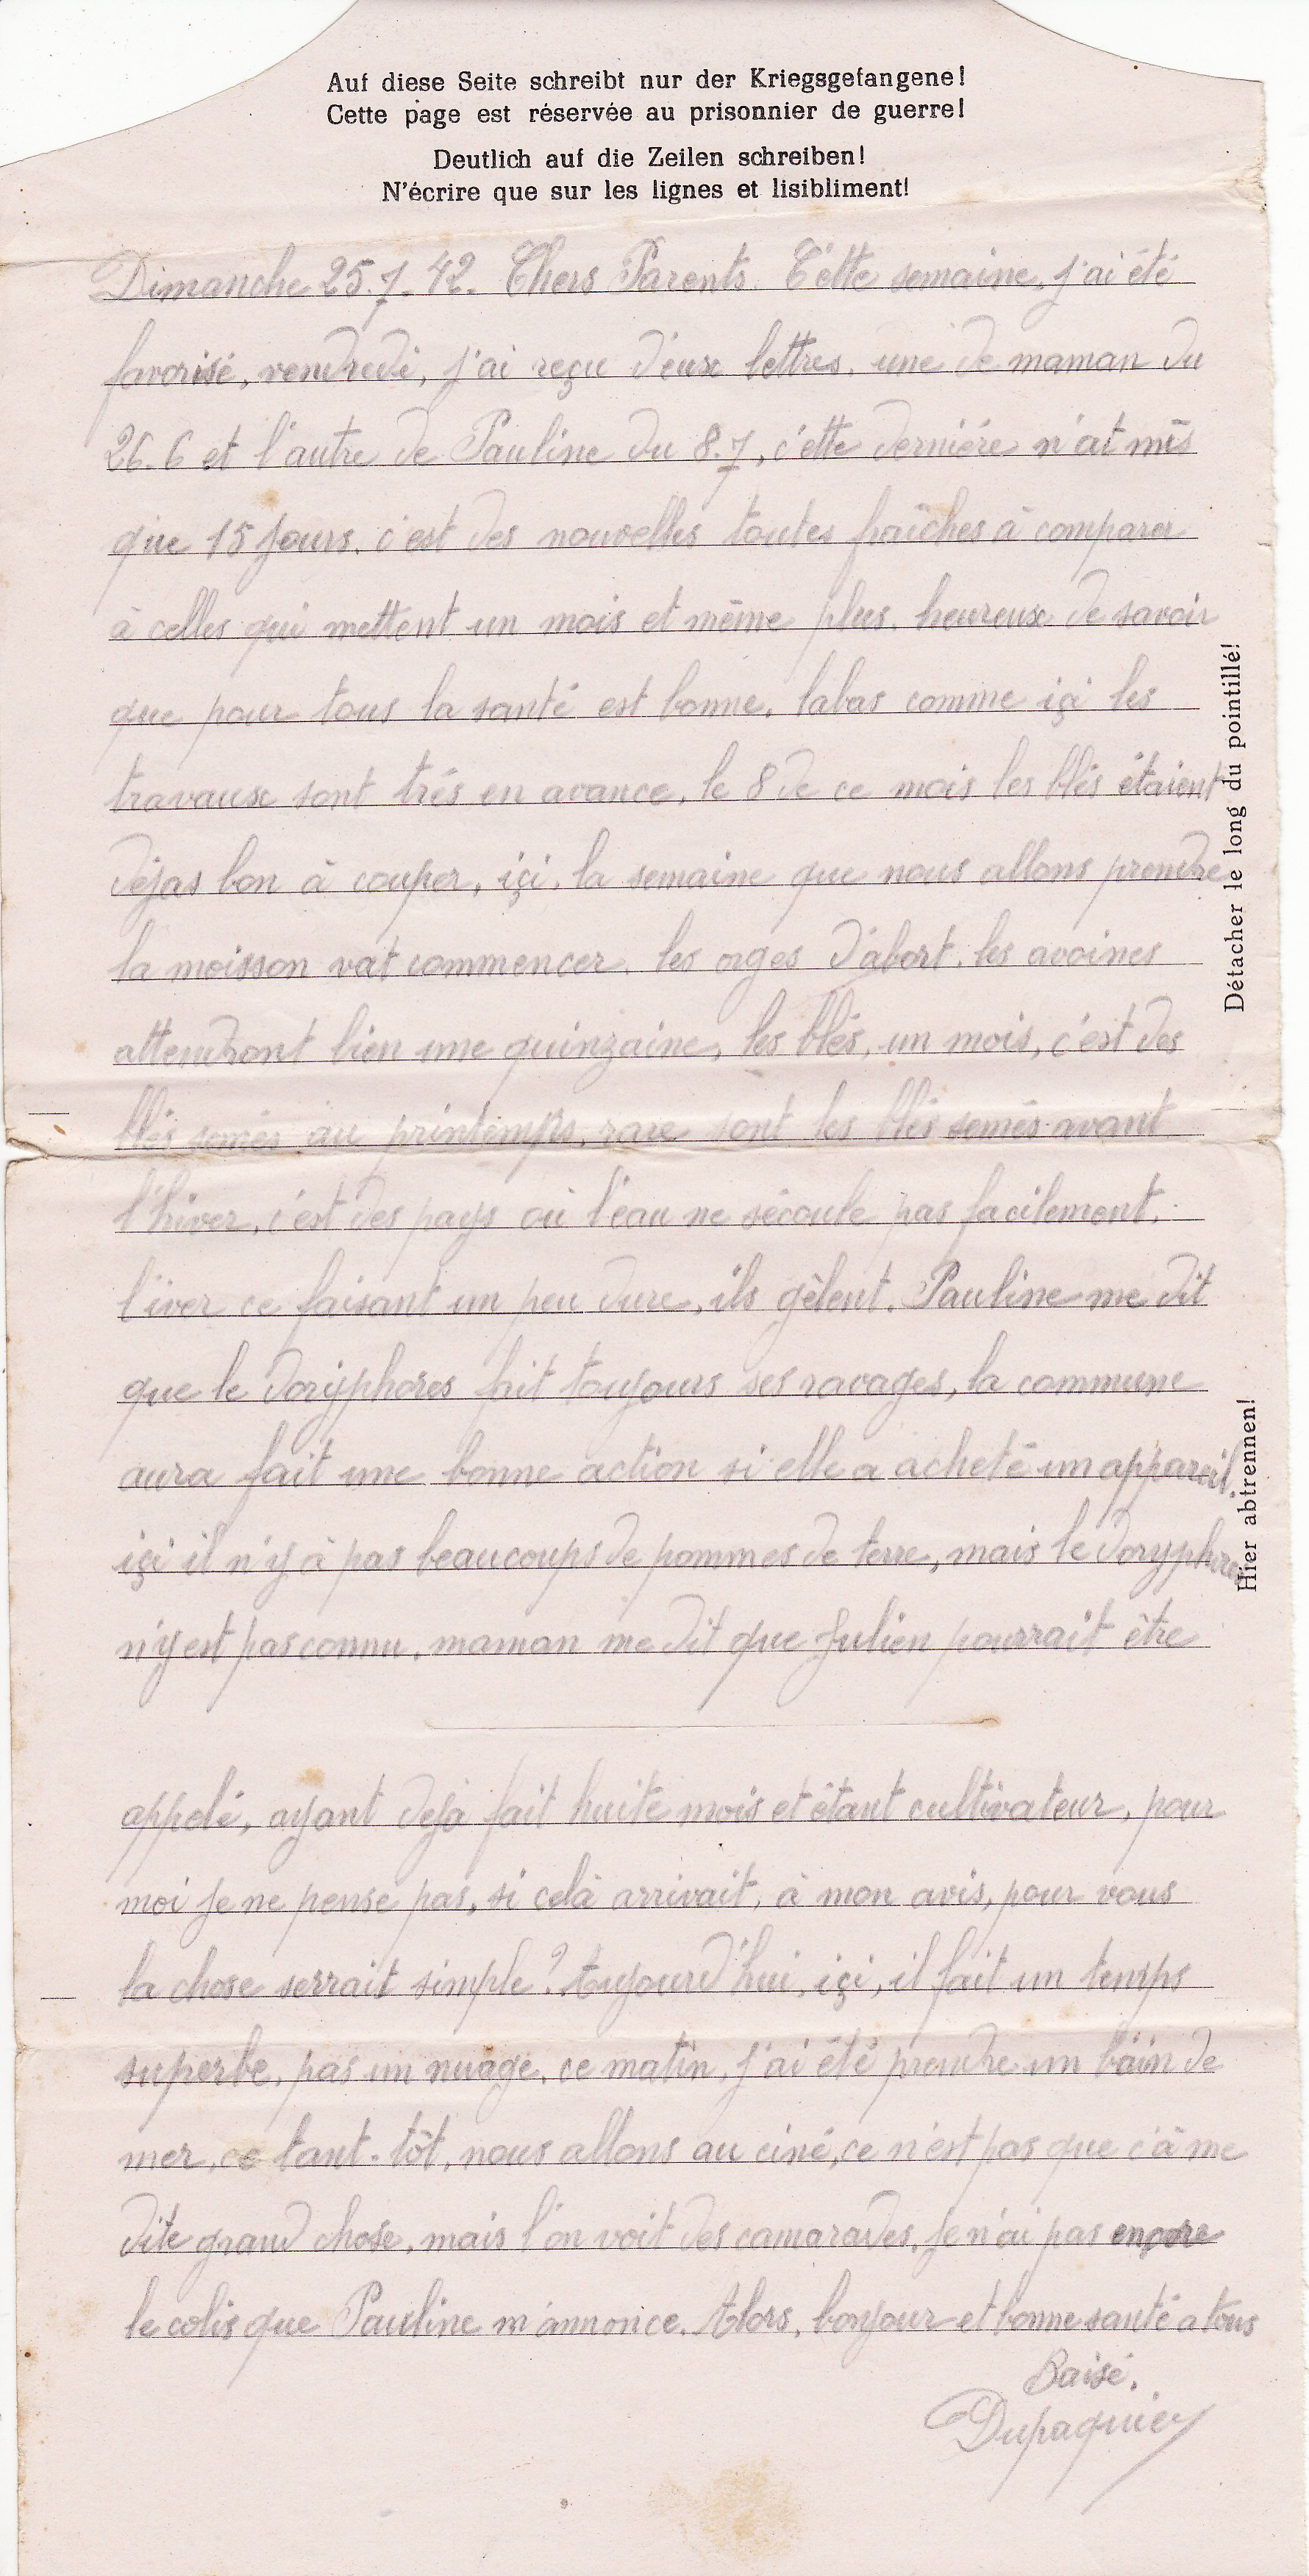 Auf diese Seite schreibt nur der Kriegsgefangene!
Cette page est réservée au prisonnier de guerre!
Deutlich auf die Zeilen schreiben!
N'écrire que sur les lignes et lisibliment!
Dimanche 25.7.42. Chers Parents. Cétte semaine, j'ai été
favorisé, vendredi, j'ai reçu d'eux lettres, une de maman du
26.6 et l'autre de Pauline du 8.7, c'ette derniére n'at mis
que 15 jours. c'est des nouvelles toutes fraîches à comparer
à celles qui mettent un mois et même plus. heureux de savoir
que pour tous la santé est bonne, labas comme içi les
travaux sont trés en avance, le 8 de ce mois les blés étaient
dejas bon à couper, içi, la semaine que nous allons prendre
la moisson vat commencer. les orges d'abort, les avoines
attendront bien une quinzaine, les blés, un mois, c'est des
blés semés au printemps, rare sont les blés semés avant
l'hiver, c'est des pays où l'eau ne sécoule pas facilement,
l'iver ce faisant un peu dure, ils gèlent. Pauline me dit
que le doryphores fait toujours ses ravages, la commune
aura fait une bonne action si elle a acheté un appareil.
içi il n'y à pas beaucoups de pommes de terre, mais le doryphores
n'y est pas connu. maman me dit que Julien pourrait être
appelé, ayant dejà fait huite mois et étant cultivateur, pour
moi je ne pense pas, si celà arrivait, à mon avis, pour vous
la chose serrait simple? Aujourd'hui, içi, il fait un temps
superbe, pas un nuage, ce matin, j'ai été prendre un bain de
mer, ce tant-tôt, nous allons au ciné, ce n'est pas que c'à me
dite grand chose, mais l'on voit des camarades. Je n'ai pas encore
le colis que Pauline m'annonce. Alors, bonjour et bonne santé a tous
Baisé.
Dupaquier
Détacher le long du pointillé!
Hier abtrennen!